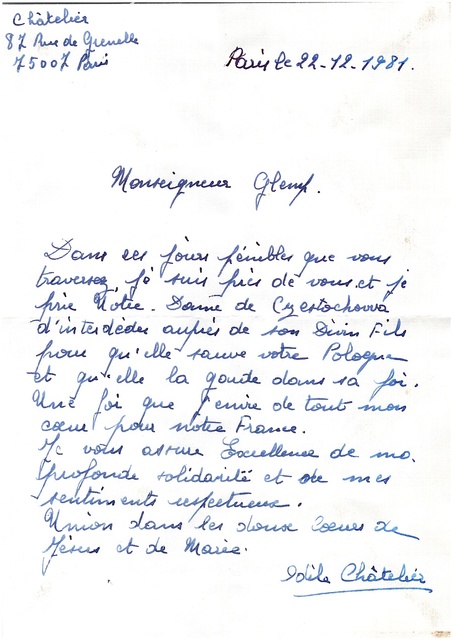 Châtelier
87 Rue de Grenelle
75007 Paris
Paris le 22-12-1981.
Monseigneur Glemp.
Dans ces jours pénibles que vous
traversez, je suis près de vous et je
prie Notre-Dame de Czestochowa
d'intercéder auprès de son Divin Fils
pour qu'elle sauve votre Pologne
et qu'elle la garde dans sa foi.
Une foi que j'envie de tout mon
cœur pour notre France.
Je vous assure Excellence de ma
profonde solidarité et de mes
sentiments respectueux.
Union dans les doux Cœurs de
Jésus et de Marie.
Odile Châtelier